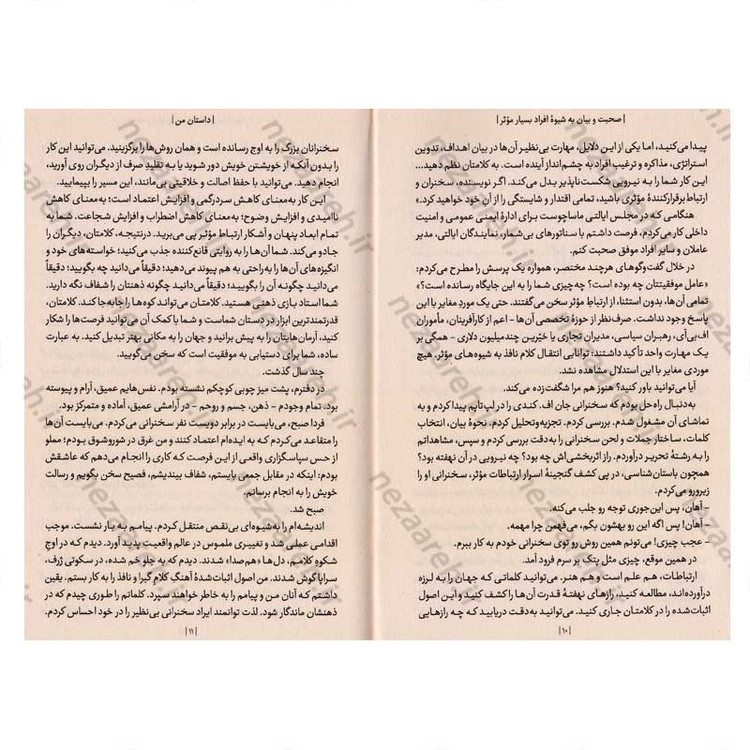 | صحبت و بیان به شیوهٔ افراد بسیار مؤثر |
پیدا می‌کنید، اما یکی از این دلایل، مهارت بی‌نظیر آن‌ها در بیان اهداف، تدوین
استراتژی، مذاکره و ترغیب افراد به چشم‌انداز آینده است. به کلامتان نظم دهید...
این کار شما را به نیرویی شکست‌ناپذیر بدل می‌کند. اگر نویسنده، سخنران و
ارتباط برقرارکنندهٔ مؤثری باشید، تمامی اقتدار و شایستگی را از آن خود خواهید کرد.»
هنگامی که در مجلس ایالتی ماساچوست برای ادارهٔ ایمنی عمومی و امنیت
داخلی کار می‌کردم، فرصت داشتم با سناتورهای بی‌شمار، نمایندگان ایالتی، مدیر
عاملان و سایر افراد موفق صحبت کنم.
در خلال گفت‌وگوهای هرچند مختصر، همواره یک پرسش را مطرح می‌کردم:
«عامل موفقیتتان چه بوده است؟ چه چیزی شما را به این جایگاه رسانده است؟»
تمامی آن‌ها، بدون استثنا، از ارتباط مؤثر سخن می‌گفتند. حتی یک مورد مغایر با این
پاسخ وجود نداشت. صرف‌نظر از حوزهٔ تخصصی آن‌ها - اعم از کارآفرینان، مأموران
اف‌بی‌آی، رهبران سیاسی، مدیران تجاری یا خیّرین چندمیلیون دلاری - همگی بر
یک مهارت واحد تأکید داشتند؛ توانایی انتقال کلام نافذ به شیوه‌های مؤثر. هیچ
موردی مغایر با این استدلال مشاهده نشد.
آیا می‌توانید باور کنید؟ هنوز هم مرا شگفت‌زده می‌کند.
به‌دنبال راه‌حل بودم که سخنرانی جان اف. کندی را در لپ‌تاپم پیدا کردم و به
تماشای آن مشغول شدم. بررسی کردم. تجزیه‌وتحلیل کردم. نحوهٔ بیان، انتخاب
کلمات، ساختار جملات و لحن سخنرانی را به‌دقت بررسی کردم و سپس، مشاهداتم
را به رشتهٔ تحریر درآوردم. راز اثربخشی‌اش چه بود؟ چه نیرویی در آن نهفته بود؟
همچون باستان‌شناسی، در پی کشف گنجینهٔ اسرار ارتباطات مؤثر، سخنرانی او را
زیرورو می‌کردم.
- آهان، پس این‌جوری توجه رو جلب می‌کنه.
- آهان! پس اگه این رو بهشون بگم، می‌فهمن چرا مهمه.
- عجب چیزی! می‌تونم همین روش رو توی سخنرانی خودم به کار ببرم.
در همین موقع، چیزی مثل پتک بر سرم فرود آمد.
ارتباطات، هم علم است و هم هنر. می‌توانید کلماتی که جهان را به لرزه
درآورده‌اند، مطالعه کنید، رازهای نهفتهٔ قدرت آن‌ها را کشف کنید و این اصول
اثبات‌شده را در کلامتان جاری کنید. می‌توانید به‌دقت دریابید که چه رازهایی
| ۱۰ |
| داستان من |
سخنرانان بزرگ را به اوج رسانده است و همان روش‌ها را برگزینید. می‌توانید این کار
را بدون آنکه از خویشتن خویش دور شوید یا به تقلیدِ صرف از دیگران روی آورید،
انجام دهید. می‌توانید با حفظ اصالت و خلاقیتی بی‌مانند، این مسیر را بپیمایید.
این کار به‌معنای کاهش سردرگمی و افزایش اعتماد است؛ به‌معنای کاهش
ناامیدی و افزایش وضوح؛ به‌معنای کاهش اضطراب و افزایش شجاعت. شما به
تمام ابعاد پنهان و آشکار ارتباط مؤثر پی می‌برید. درنتیجه، کلامتان، دیگران را
جادو می‌کند. شما آن‌ها را به روایتی قانع‌کننده جذب می‌کنید؛ خواسته‌های خود و
انگیزه‌های آن‌ها را به‌راحتی به هم پیوند می‌دهید؛ دقیقاً می‌دانید چه بگویید؛ دقیقاً
می‌دانید چگونه آن را بگویید؛ دقیقاً می‌دانید چگونه ذهنتان را شفاف نگه دارید.
شما استاد بازی ذهنی هستید. کلامتان می‌تواند کوه‌ها را جابه‌جا کند. کلامتان،
قدرتمندترین ابزار در دستان شماست و شما با کمک آن می‌توانید فرصت‌ها را شکار
کنید، آرمان‌هایتان را به پیش برانید و جهان را به مکانی بهتر تبدیل کنید. به عبارت
ساده، شما برای دستیابی به موفقیت است که سخن می‌گویید.
چند سال گذشت.
در دفترم، پشت میز چوبی کوچکم نشسته بودم. نفس‌هایم عمیق، آرام و پیوسته
بود. تمام وجودم - ذهن، جسم و روحم - در آرامشی عمیق، آماده و متمرکز بود.
فردا صبح، می‌بایست در برابر دویست نفر سخنرانی می‌کردم. می‌بایست آن‌ها
را متقاعد می‌کردم که به ایده‌ام اعتماد کنند و من غرق در شوروشوق بودم؛ مملو
از حس سپاسگزاری واقعی از این فرصت که کاری را انجام می‌دهم که عاشقش
بودم: اینکه در مقابل جمعی بایستم، شفاف بیندیشم، فصیح سخن بگویم و رسالت
خویش را به انجام برسانم.
صبح شد.
اندیشه‌ام را به‌شیوه‌ای بی‌نقص منتقل کردم. پیامم به بار نشست. موجب
اقدامی عملی شد و تغییری ملموس در عالم واقعیت پدید آورد. دیدم که در اوج
شکوهِ کلامم، دل‌ها «هم‌صدا» شدند. دیدم که به جلو خم شده، در سکوتی ژرف،
سراپا گوش شدند. من اصول اثبات‌شدهٔ آهنگِ کلامِ گیرا و نافذ را به کار بستم. یقین
داشتم که آنان من و پیامم را به خاطر خواهند سپرد. کلماتم را طوری چیدم که در
ذهنشان ماندگار شود. لذت توانمند ایراد سخنرانی بی‌نظیر را در خود احساس کردم.
| ۱۱ |
nezaareh.ir